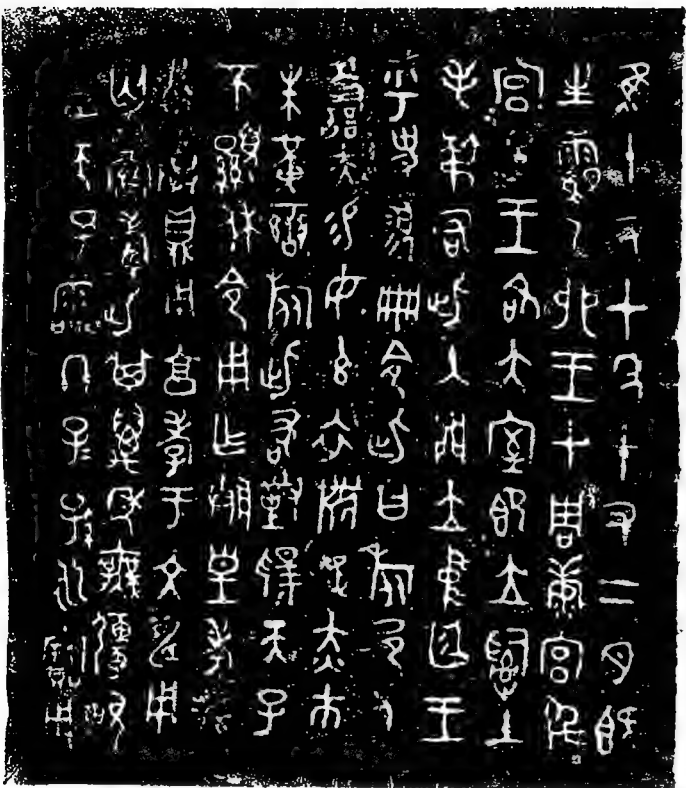 隹十又七年十又二月既
生霸乙卯王才周康宮徲
宮旦王各大室即立𤔲土
毛弔右此入門立中廷王
乎史翏冊令此曰旅邑人
善夫易女玄衣黹屯赤巿
朱黃䜌旅此敢對揚天子
不顯休令用乍朕皇考癸
公尊鼎用享孝于文申用
匄眉壽此其萬年無彊畯
臣天子霝冬子子孫永寶用